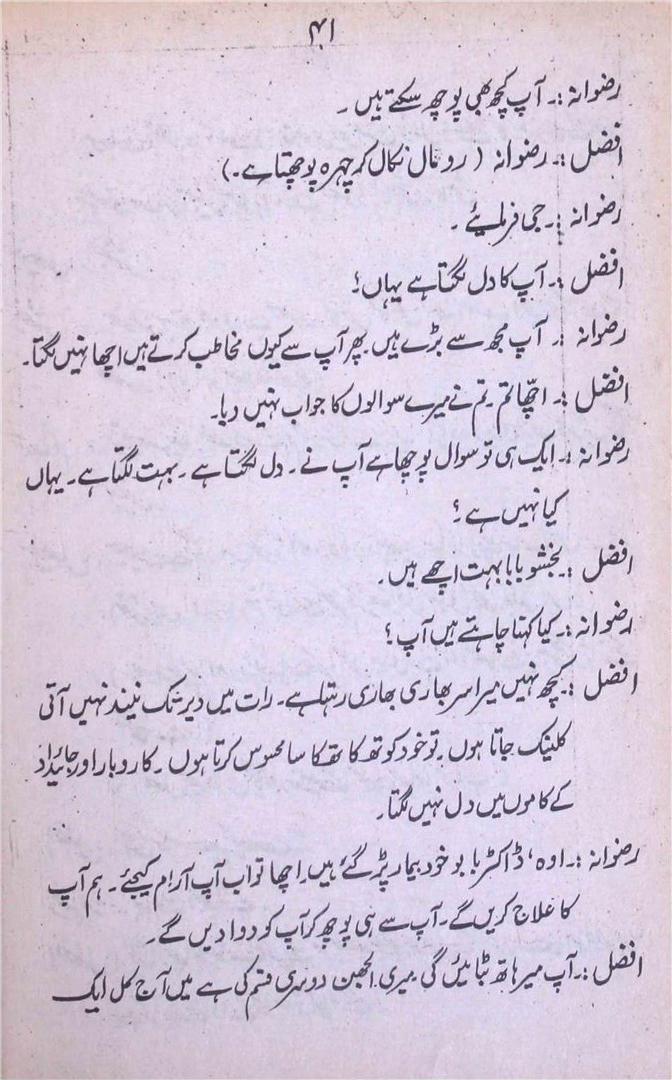 ۴۱
رضوانہ :۔ آپ کچھ بھی پوچھ سکتے ہیں ۔
افضل :۔ رضوانہ ( رومال نکال کر چہرہ پوچھتا ہے ۔)
رضوانہ :۔ جی فرمائیے ۔
افضل :۔ آپ کا دل لگتا ہے یہاں ؟
رضوانہ :۔ آپ مجھ سے بڑے ہیں ۔ پھر آپ سے کیوں مخاطب کرتے ہیں اچھا نہیں لگتا ۔
افضل :۔ اچّھا تم ۔ تم نے میرے سوالوں کا جواب نہیں دیا۔
رضوانہ :۔ ایک ہی تو سوال پوچھا ہے آپ نے ۔ دل لگتا ہے ۔ بہت لگتا ہے ۔ یہاں
کیا نہیں ہے ؟
افضل :۔ بخشو بابا بہت اچھے ہیں ۔
رضوانہ :۔ کیا کہنا چاہتے ہیں آپ ؟
افضل :۔ کچھ نہیں میرا سر بھاری بھاری رہتا ہے ۔ رات میں دیر تک نیند نہیں آتی
کلینک جاتا ہوں ۔ تو خود کو تھکا تھکا سا محسوس کرتا ہوں ۔ کاروبار اور جائیداد
کے کاموں میں دل نہیں لگتا ۔
رضوانہ :۔ اوہ ، ڈاکٹر بابو خود بیمار پڑ گئے ہیں ۔ اچھا تو اب آپ آرام کیجئے ۔ ہم آپ
کا علاج کریں گے ۔ آپ سے ہی پوچھ کر آپ کو دوا دیں گے ۔
افضل :۔ آپ میرا ہاتھ بٹائیں گی ۔ میری الجھن دوسری قسم کی ہے میں آج کل ایک